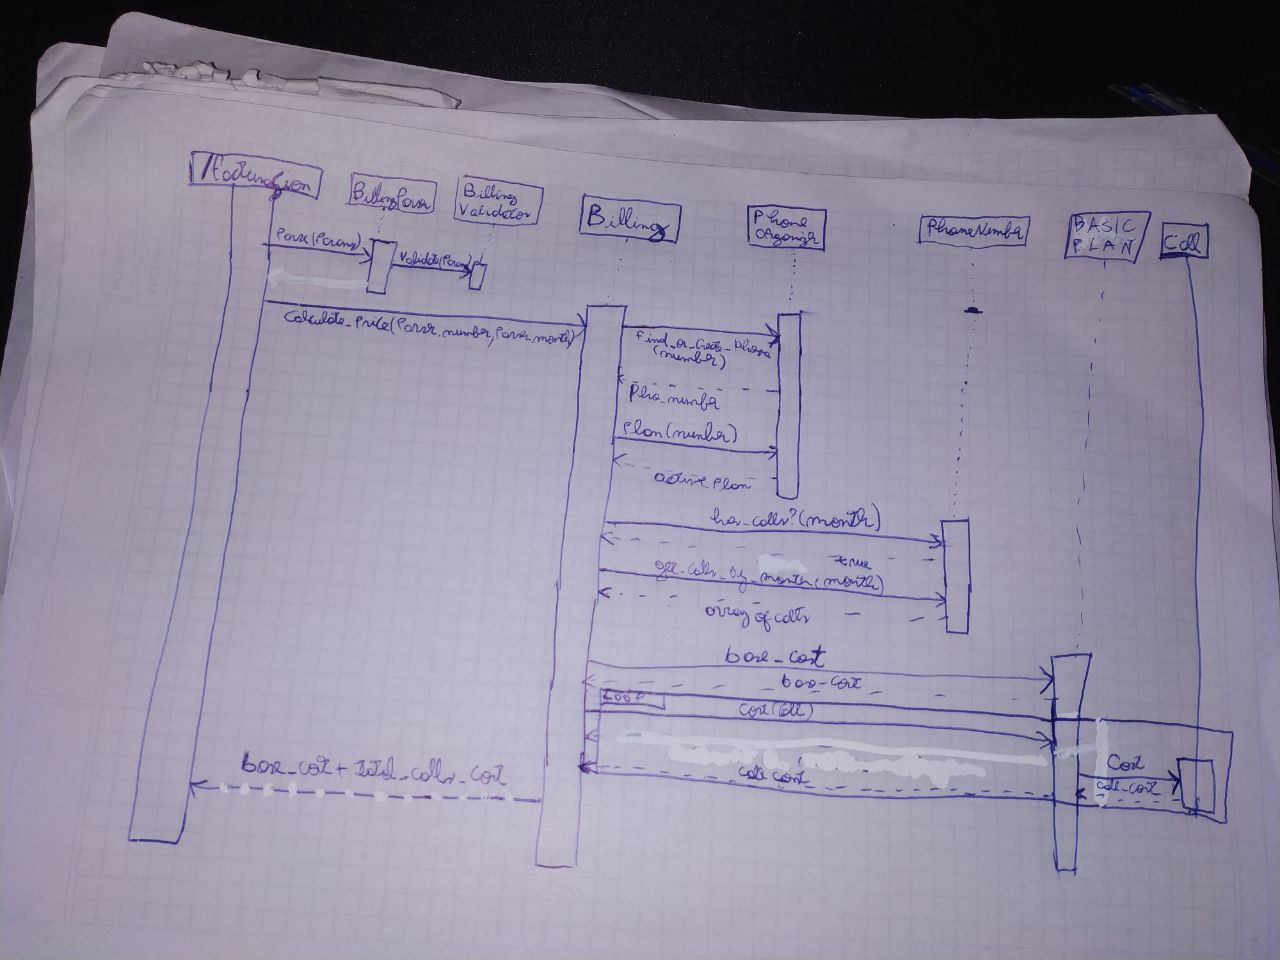 Facturacion
Billing Parser
Billing
Validator
Billing
Phone
Organizer
PhoneNumber
BASIC
PLAN
Call
Parse(Params)
Validate(Params)
Calculate_Price(Parser.number, Parser.month)
find_or_create_phone
(number)
Pho_number
Plan(number)
active Plan
has_calls?(month)
true
get_calls_by_month(month)
array of calls
base_cost
base-cost
LOOP
Cost(Call)
Cost
call-cost
call cost
base_cost + total_calls_cost